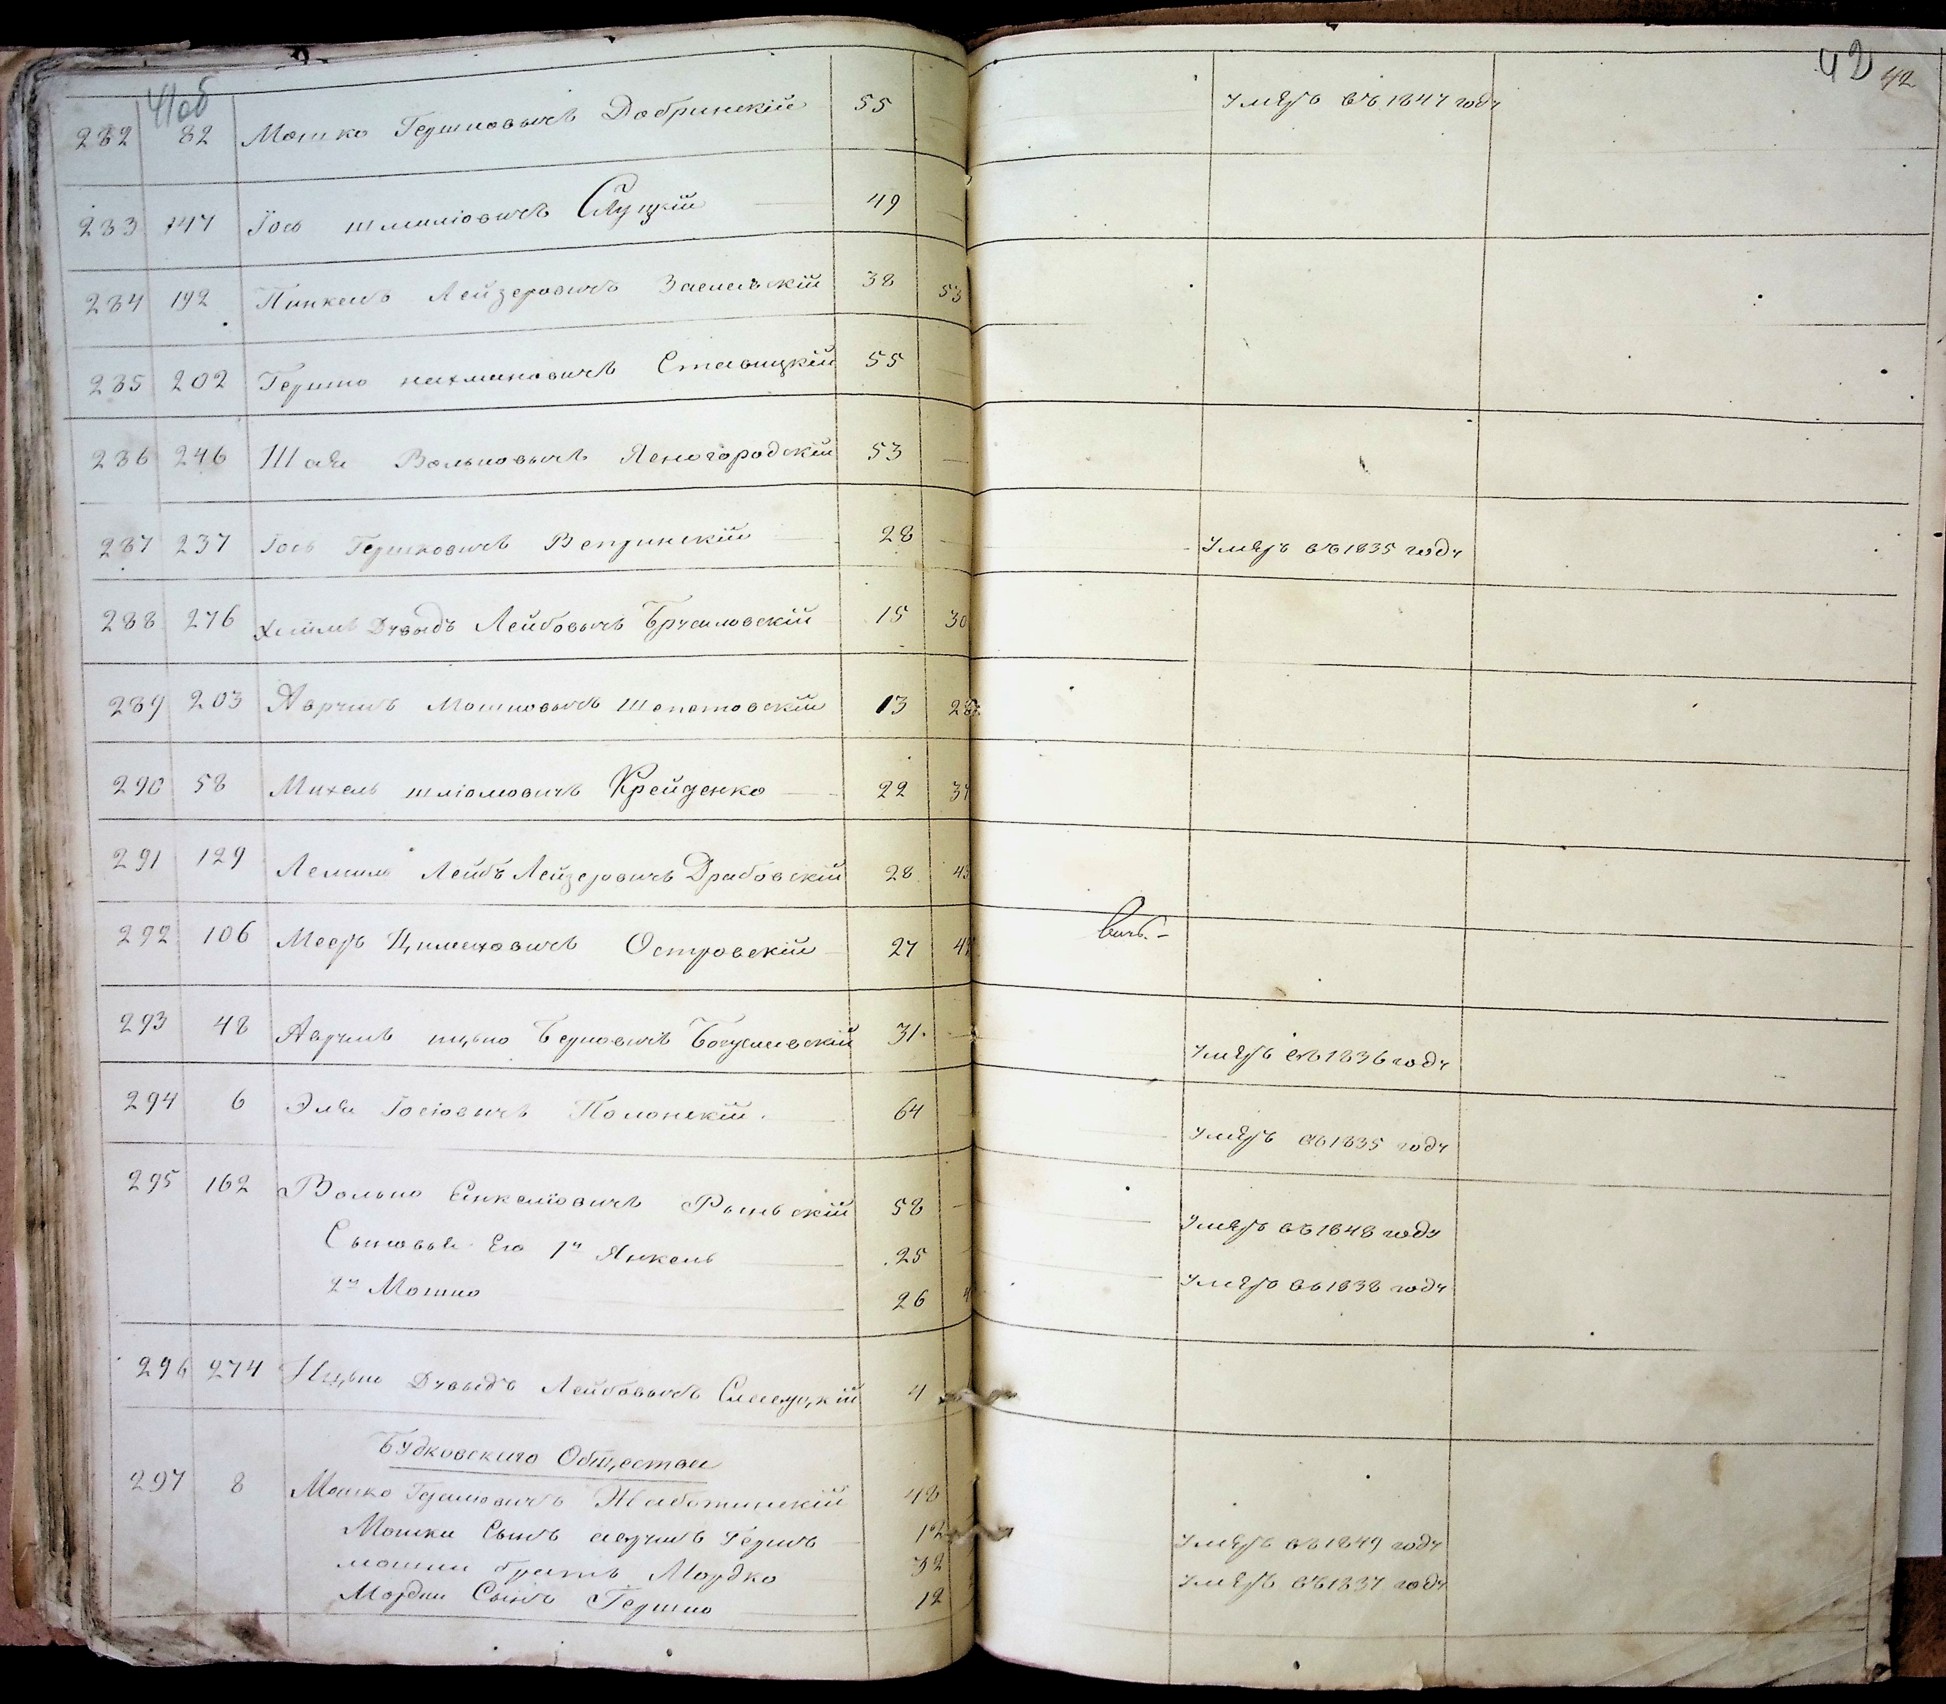 41об
42 42
282 82 Мошко Гершковичъ Добринскій 55 умеръ въ 1847 году
283 147 Іось Шмилiовичъ Слуцкій 49
284 192 Пинкасъ Лейзеровичъ Заславскій 38 53
285 202 Гершко Нахмановичъ Ставицкій 55
286 246 Шаiя Вольковичъ Ясногородскій 53
287 237 Іось Гершковичъ Вепринскій 28 умеръ въ 1835 году
288 276 Хаимъ Дувыдъ Лейбовичъ Брусиловскій 15 30
289 203 Аврумъ Мошковичъ Шепетовскій 13 28
290 58 Михель Шліомовичъ Крейденко 22 37
291 129 Лейбъ Лейзеровичъ Драбовскій 28 43
292 106 Мееръ Островскій 27 4
293 48 Аврумъ Ицько Берковичъ Богуславскій 31 умеръ въ 1836 году
294 6 Эля Іосіовичъ Полонскій 64 умеръ въ 1835 году
295 162 Волько Янкелiовичъ 58 умеръ въ 1848 году
Сыновья Его 1й Янкель 25 умеръ въ 1838 году
2й Мошко 26 4
296 274 Ицько Дувыдъ Лейбовичъ 4
Будковскаго Общества
297 8 Мошко Гершковичъ Жаботинскій 48
Мошки Сынъ Аврумъ Гершъ 12 умеръ въ 1849 году
Мошки братъ Мордко 32 умеръ въ 1837 году
Мордки Сынъ Гершко 12